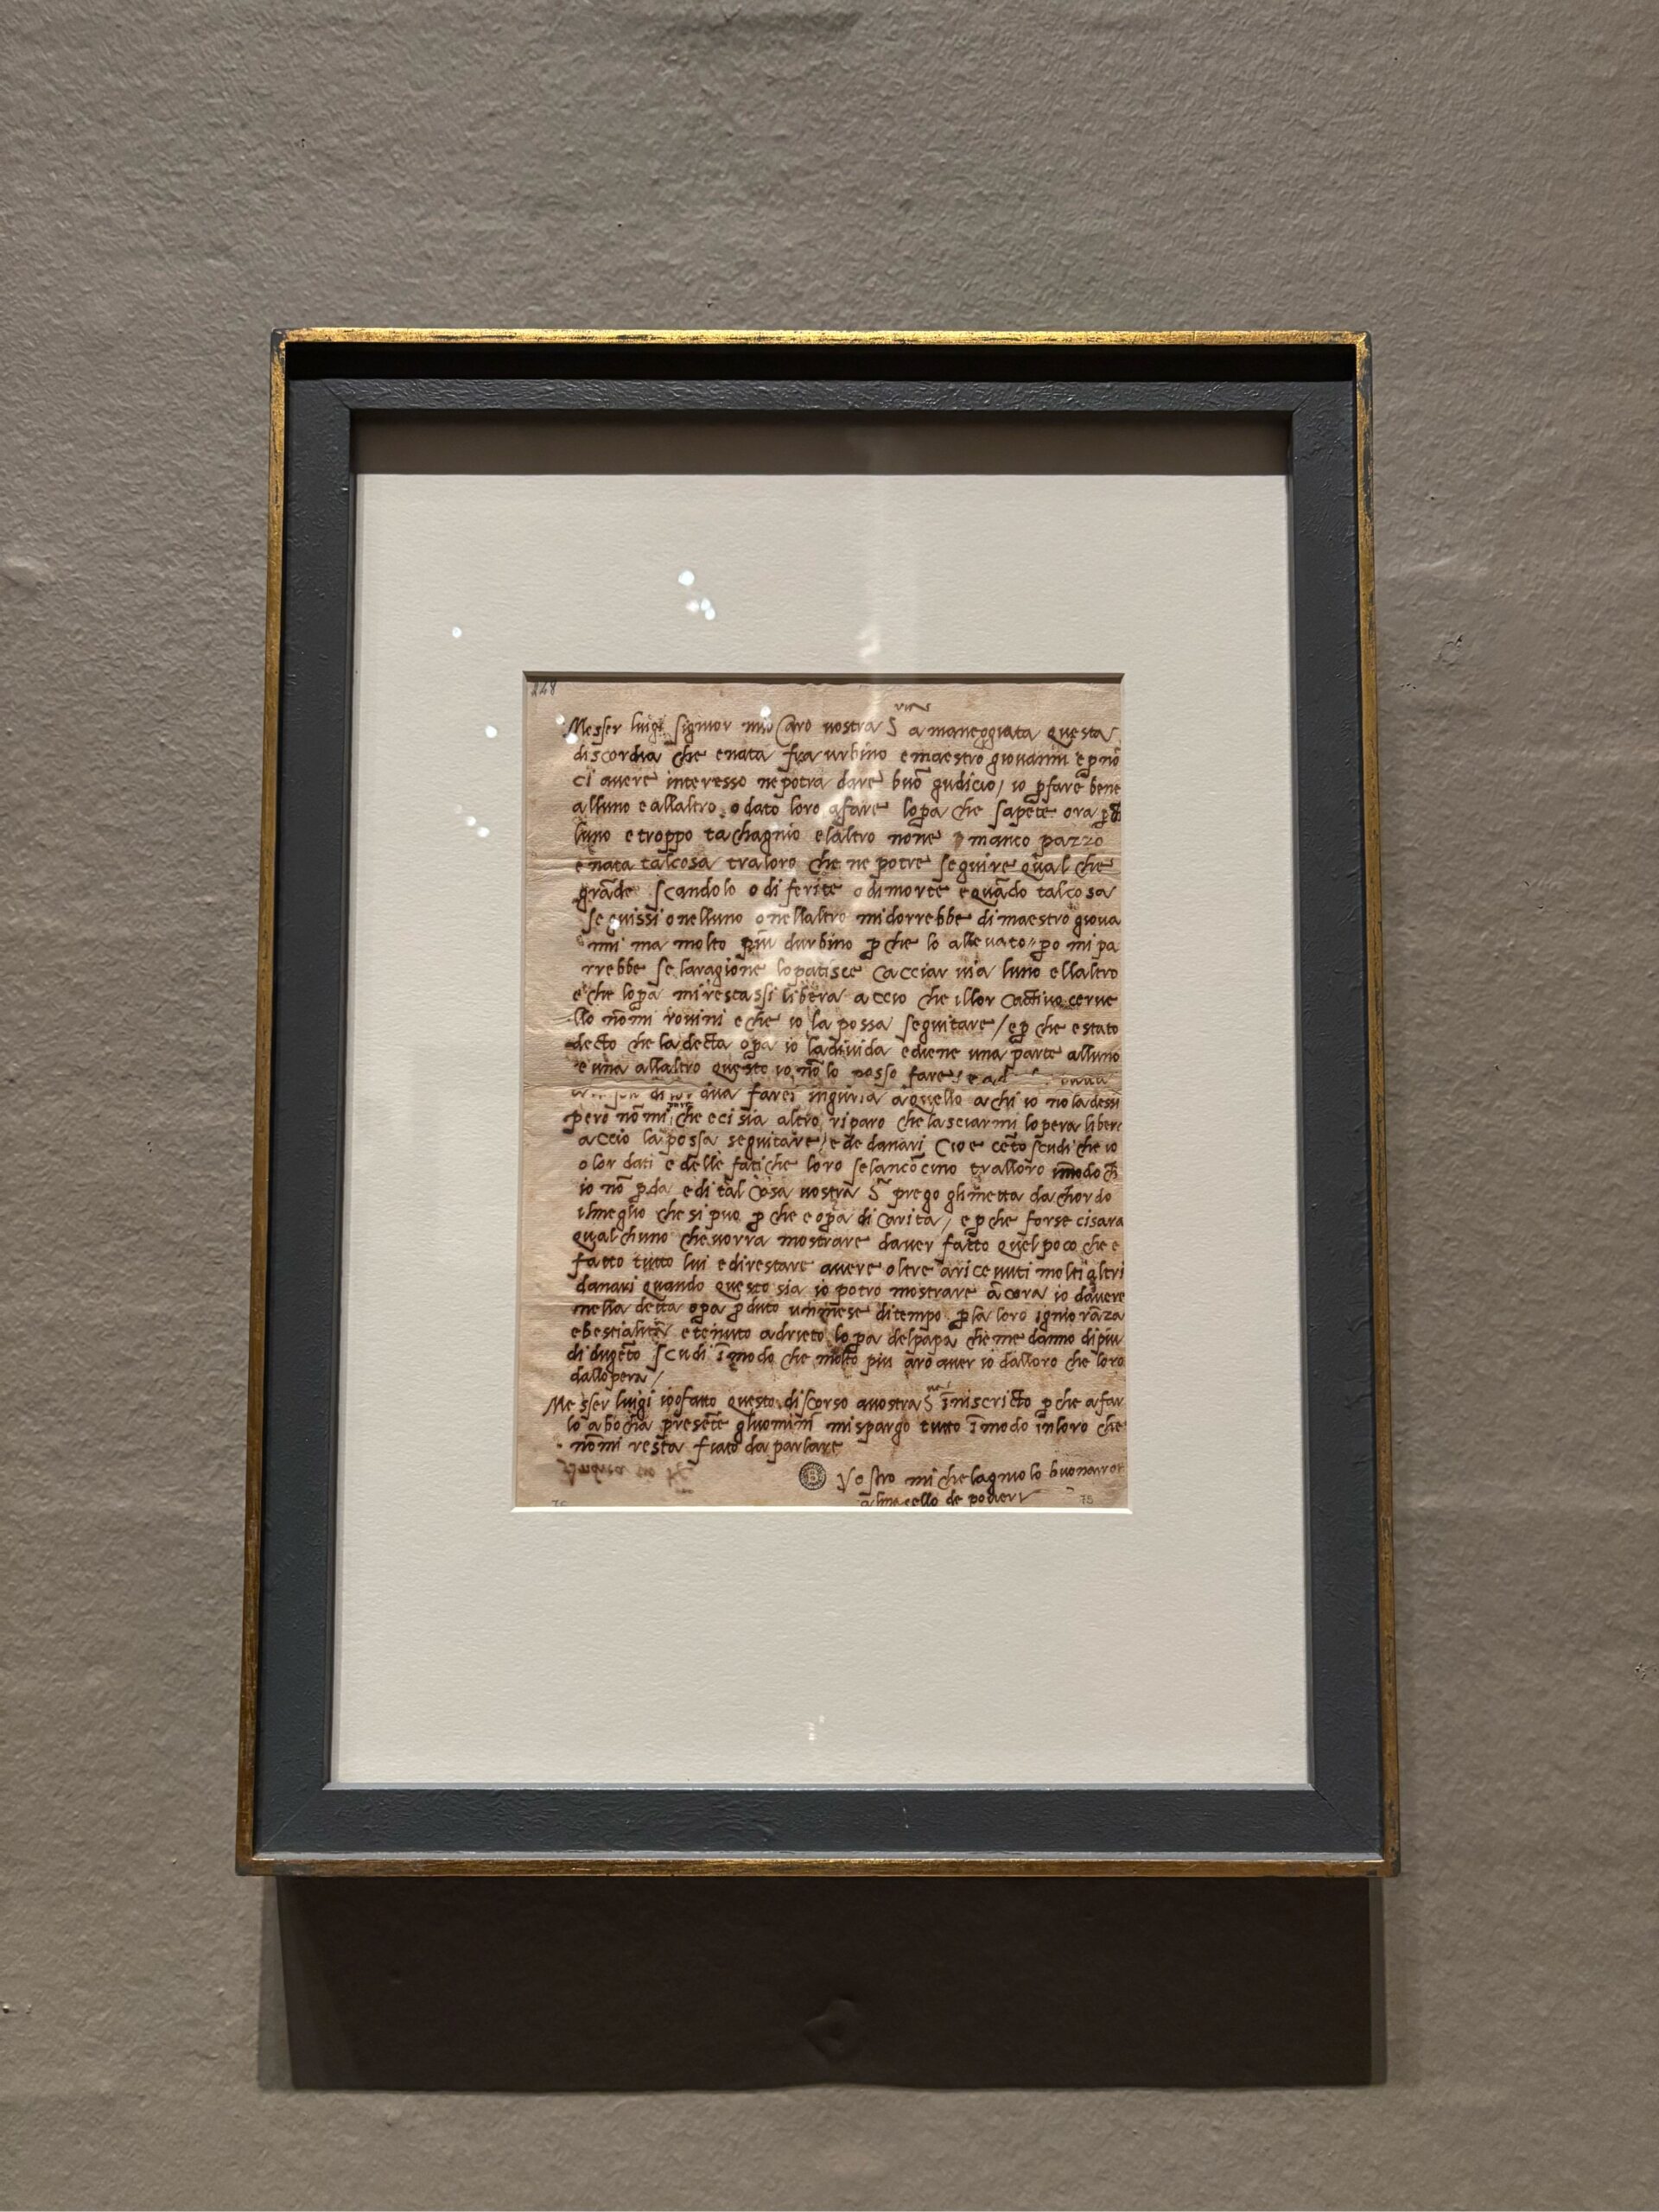 248
Messer luigi signior mio Caro vostra S a maneggiata questa
discordia che enata fra urbino e maestro giovanni e p nō
ci avere interesso ne potra dare buō gudicio / io p fare bene
alluno e allaltro o dato loro a fare lopa che sapete ora p
luno e troppo tachagnio elaltro none manco pazzo
e nata talcosa traloro che ne potre seguire qual che
grāde scandolo o di ferite o dimorte e quādo talcosa
seguissi o nelluno o nellaltro midorrebbe di maestro giova
nni ma molto piu durbino p che lo allevato po mi pa
rrebbe se laragione lo patisce cacciar via luno ellaltro
e che lopa mi restassi libera accio che illor cactivo cerve
llo nōmi rovini e che io la possa seguitare / e p che e stato
decto che la decta opa io la divida e diene una parte alluno
e una allaltro questo io nō lo posso fare
farei ingiuria a quello a chi io no la dessi
pero nō mi che eci sia altro riparo che lasciarmi lopera liber
accio la possa seguitare / e de danari cioe cēto scudi che io
o lor dati e delle fatiche loro selancōcino tralloro
io nō p da e di tal cosa vostra S prego gli metta dachordo
ilmeglio che si puo p che e opa di carita / e p che forse cisara
qualchuno che vorra mostrare daver fatto quel poco che e
fatto tutto lui e direstare avere oltre aricevuti molti altri
danari quando questo sia io potro mostrare ācora io davere
nella detta opa p duto un mese di tempo p la loro igniorāza
e bestialita e tenuto adrieto lopa del papa che me danno dipiu
di dugēto scudi īmodo che molto piu aro aver io dalloro che loro
dallopera /
Messer luigi io o fatto questo discorso a vostra S īniscricto p che a far
lo a bocha presēte gluomini mi spargo tutto īmodo īnloro che
nōmi resta fiato da parlare
Vostro michelagniolo buonarro
al macello de poveri
75